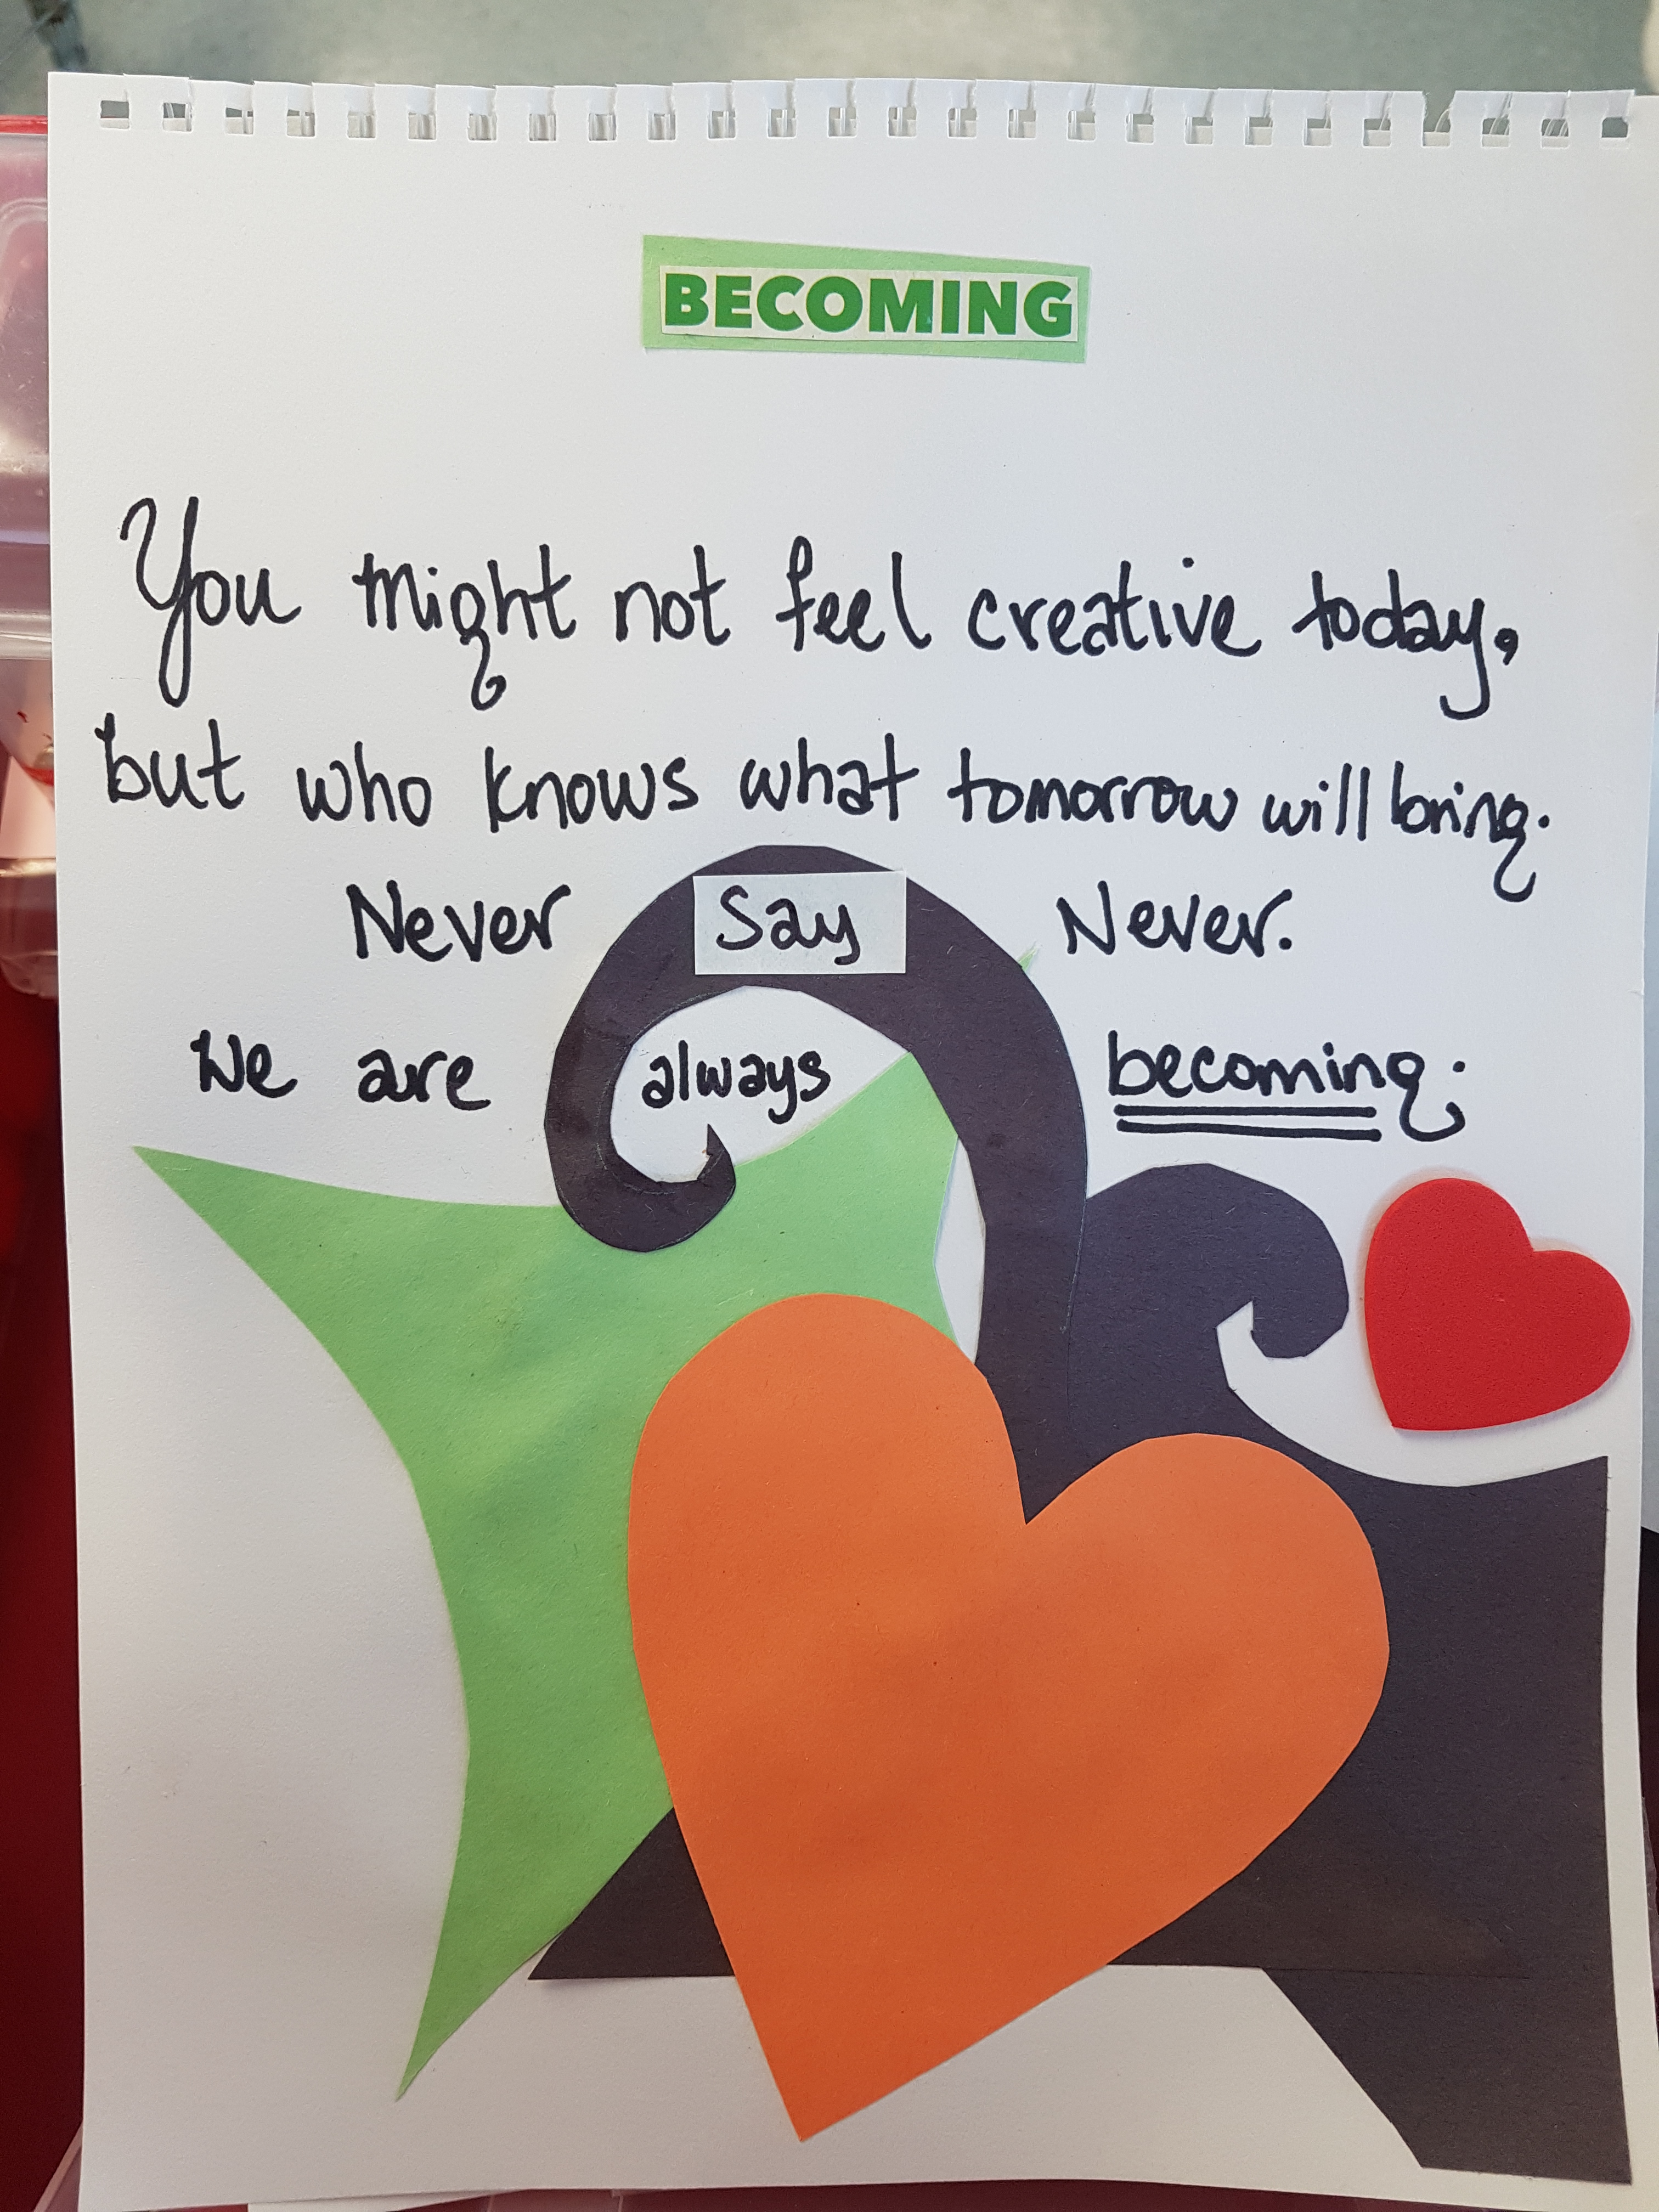 BECOMING
You might not feel creative today,
but who knows what tomorrow will bring.
Never Say Never.
We are always becoming.